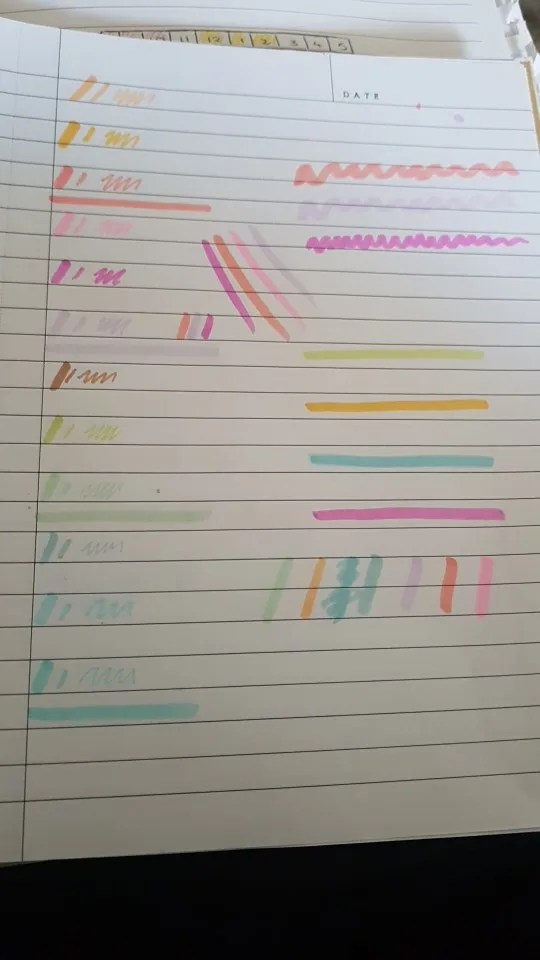 11 12 1 2 3 4 5
DATE